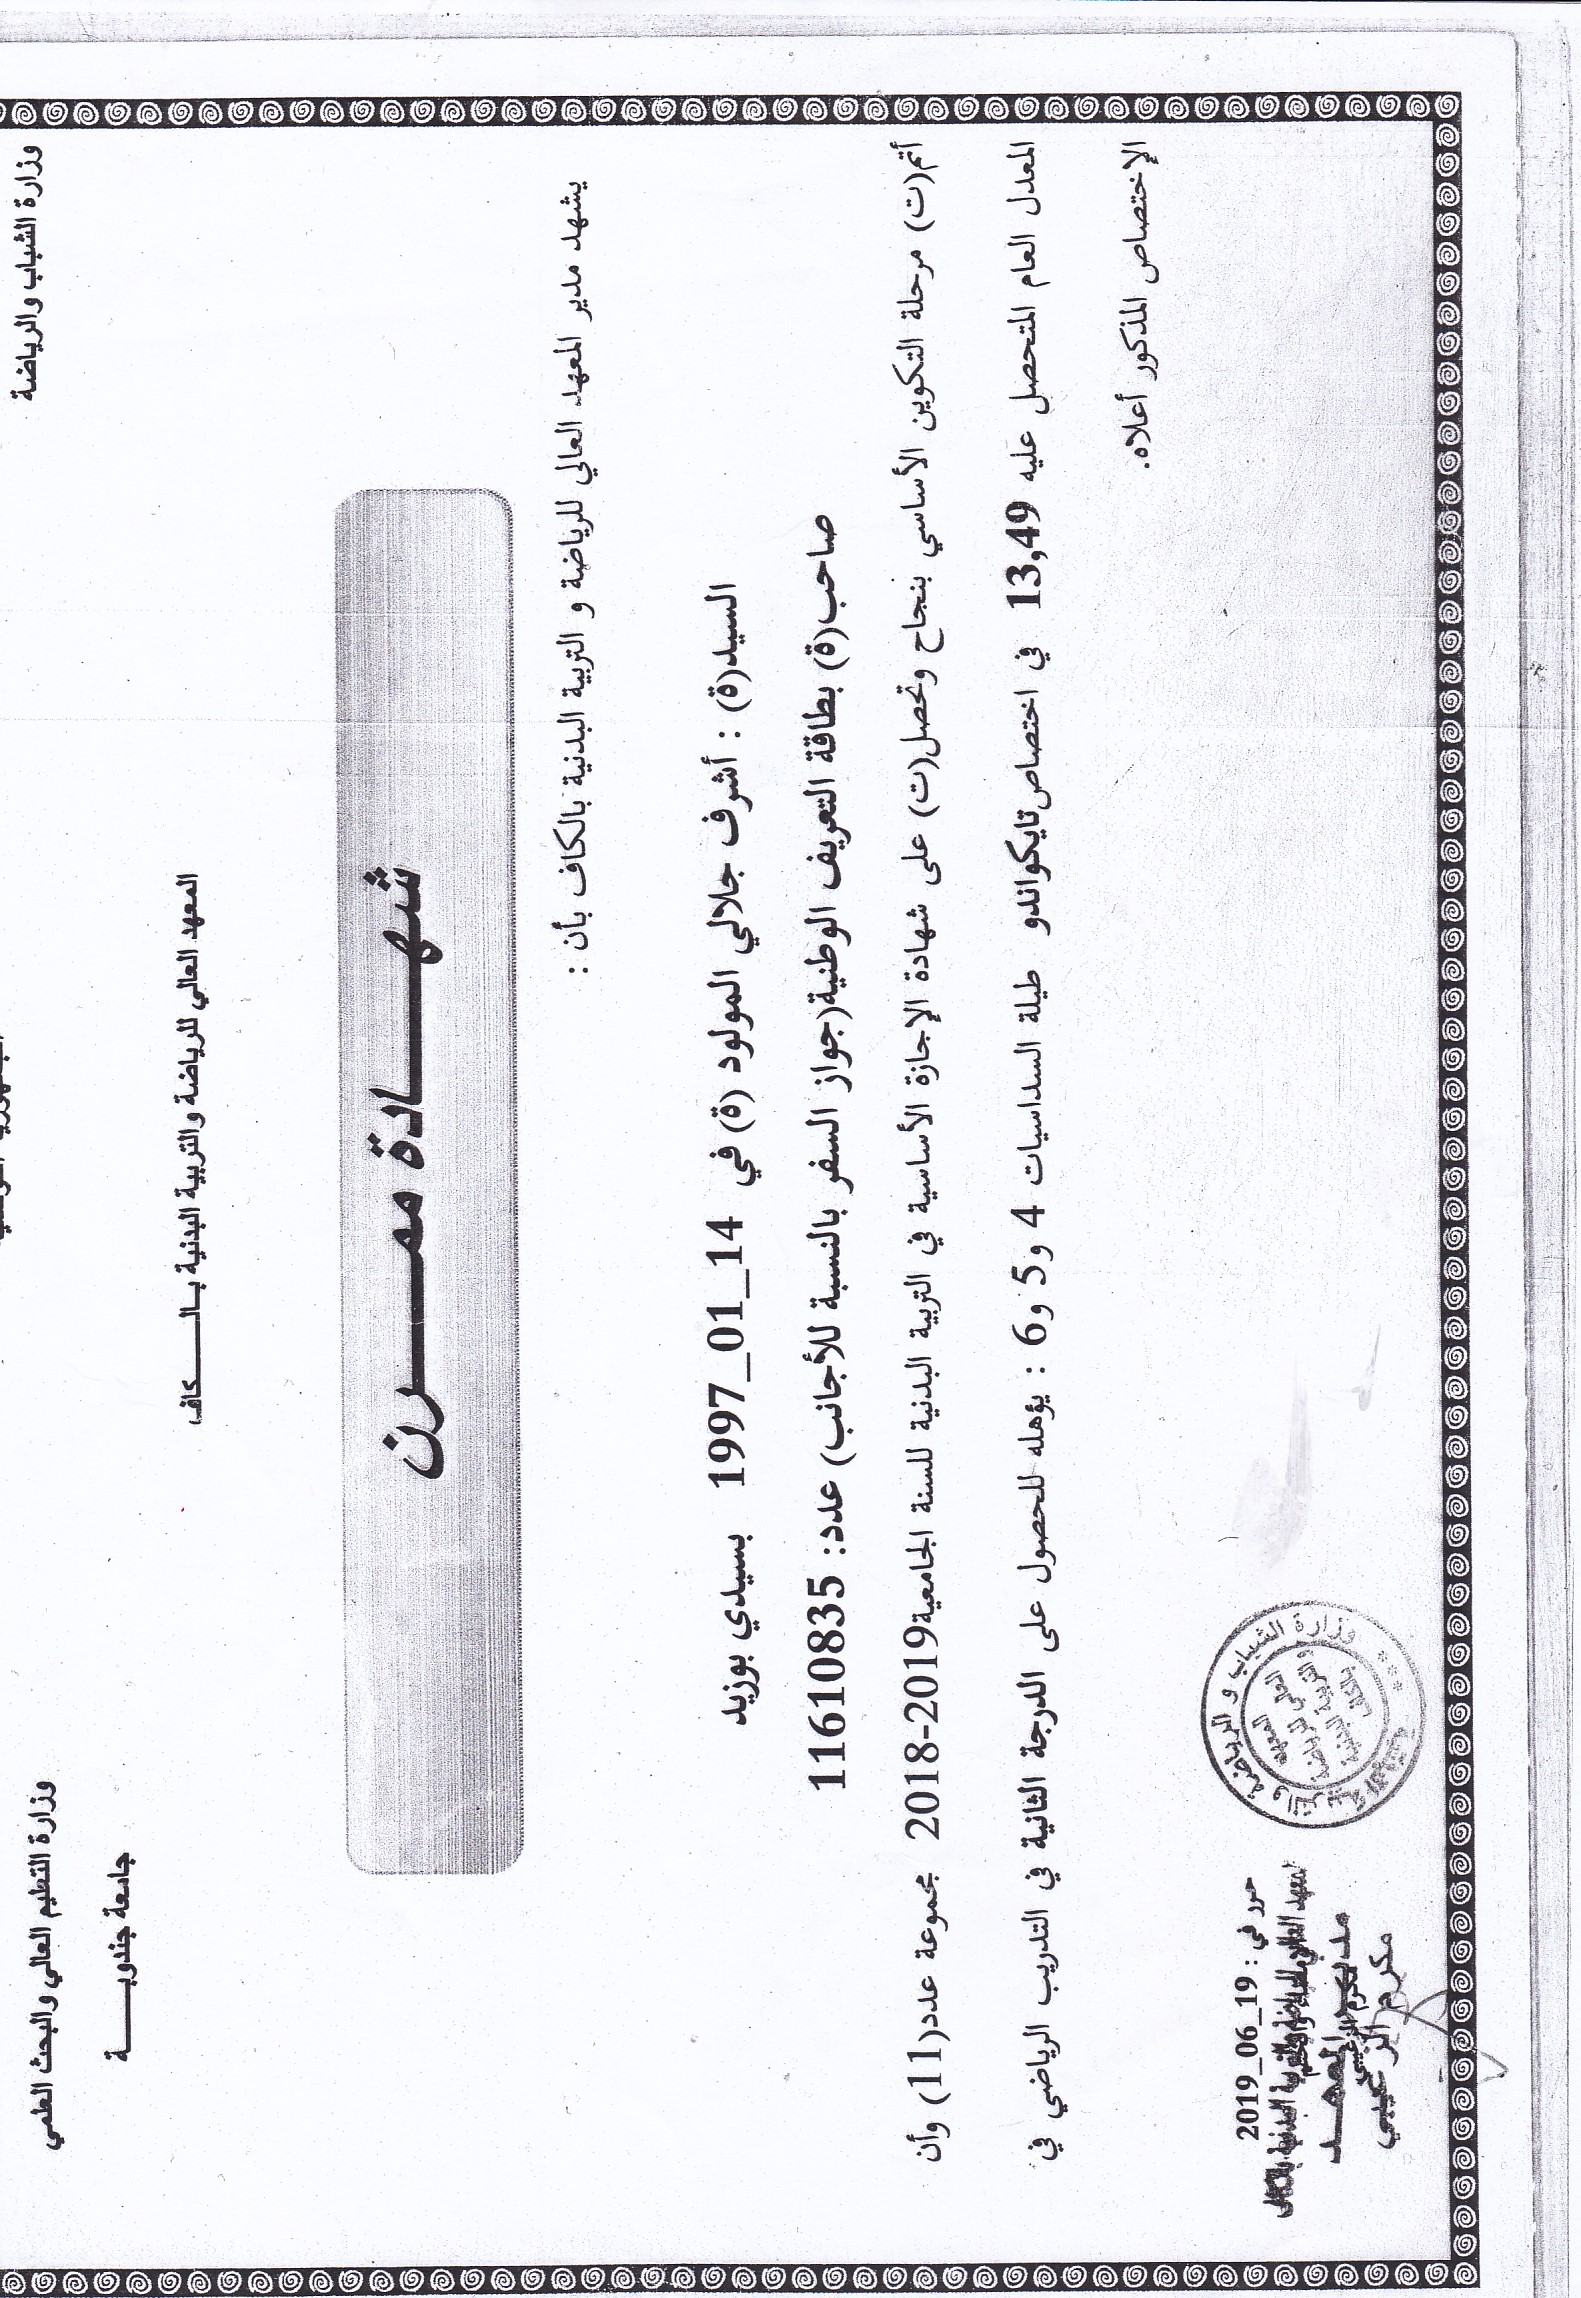 الجمهورية التونسية
وزارة الشباب والرياضة
وزارة التعليم العالي والبحث العلمي
جامعة جندوبــــــة
المعهد العالي للرياضة والتربية البدنية بـالـــــــــكاف
شهـــــــادة ممـــــــرن
يشهد مدير المعهد العالي للرياضة و التربية البدنية بالكاف بأن :
السيد(ة) : أشرف جلالي المولود (ة) في 14_01_1997 بسيدي بوزيد
صاحب(ة) بطاقة التعريف الوطنية(جواز السفر بالنسبة للأجانب) عدد: 11610835
أتم(ت) مرحلة التكوين الأساسي بنجاح وتحصل(ت) على شهادة الإجازة الأساسية في التربية البدنية للسنة الجامعية2019-2018 مجموعة عدد(11) وأن
المعدل العام المتحصل عليه 13,49 في اختصاص تايكواندو طيلة السداسيات 4 و5 و6 : يؤهله للحصول على الدرجة الثانية في التدريب الرياضي في
الإختصاص المذكور أعلاه.
حرر في : 19_06_2019
مديـر المعهـــد
مكرم الزعيبي
وزارة الشباب و الرياضة والتربية البدنية
المعهد العالي للرياضة والتربية البدنية بالكاف